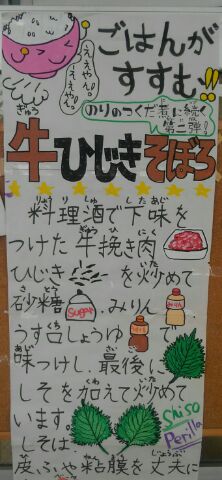 ごはんが
すすむ!!
ええやん。
えええ。
のりのつくだ煮に続く
第二弾!
ぎゅう
牛ひじきそぼろ
料理酒で下味を
つけた牛挽き肉
ひじき を炒めて
砂糖 Sugar 、みりん みりん
うす口しょうゆ
味つけし、最後に
しそを加えて炒めて
います。 Shiso
しそは Perilla
皮ふや粘膜を丈夫に